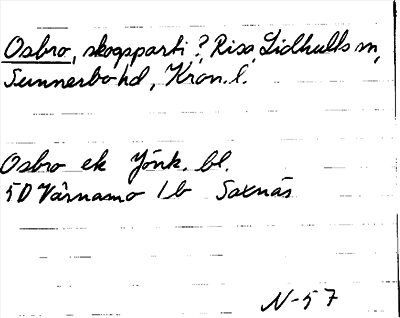 Osbro, skogsparti ?, Risa, Lidhults sn,
Sunnerbo hd, Kron. l.
Osbro ek Jönk. bl.
5D Värnamo 1b Saxnäs
N-57